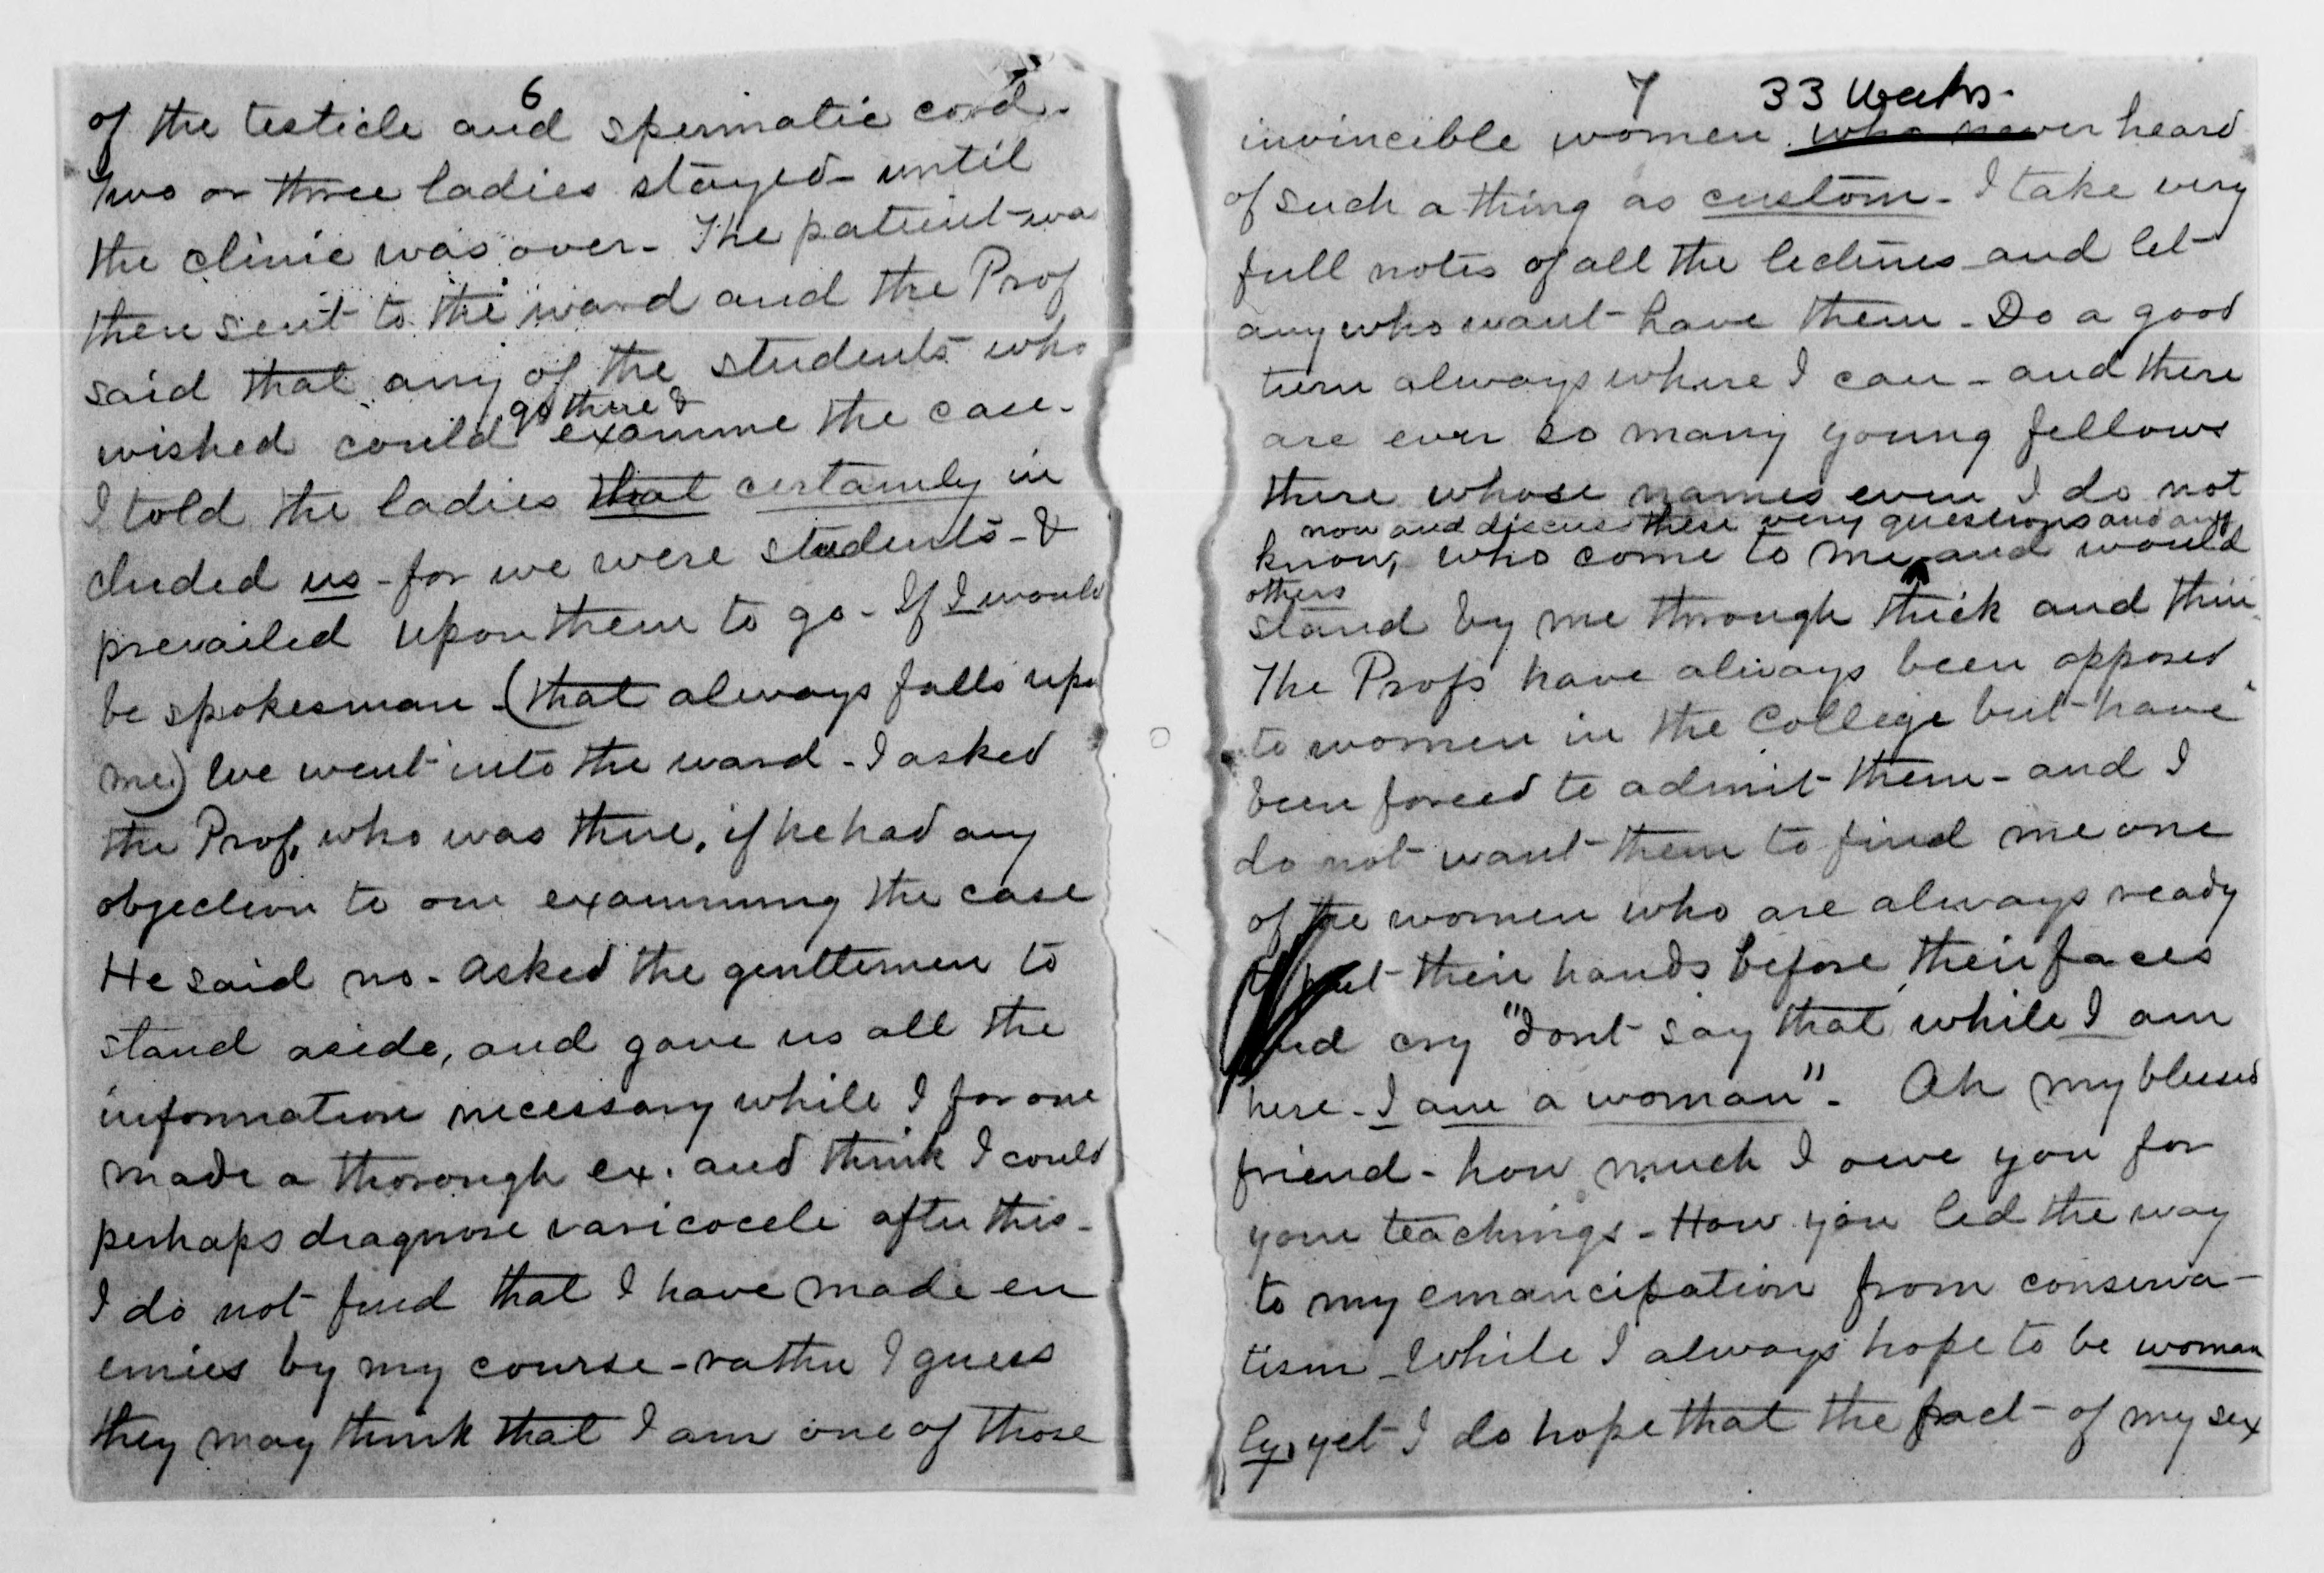 6
of the testicle and spermatic cord.
Two or three ladies stayed - until
the clinic was over - The patient was
then sent to the ward and the Prof
said that any of the students who
go there &
wished could examine the case.
I told the ladies that certainly in
cluded us - for we were students - &
prevailed upon them to go - If I would
be spokesman - (that always falls upon
me) We went into the ward - I asked
the Prof, who was there, if he had any
objection to our examining the case
He said no - asked the genttemen to
stand aside, and gave us all the
information necessary while I for one
made a thorough ex. and think I could
perhaps diagnose varicocele after this -
I do not find that I have made en
emies by my course - rather I guess
they may think that I am one of those
7 33 Weeks -
invincible women who never heard
of such a thing as custom - I take very
full notes of all the lectures and let
any who want have them - Do a good
turn always where I can - and there
are ever so many young fellows
there whose names even I do not
now and discuss these very questions and any
know, who come to me and would
others
stand by me through thick and thin
The Profs have always been opposed
to women in the College but have
been forced to admit them - and I
do not want them to find me one
of the women who are always ready
to put their hands before their faces
and cry "dont say that while I am
here - I am a woman" - Ah my blessed
friend - how much I owe you for
your teachings - How you led the way
to my emancipation from conserva-
tism - While I always hope to be woman
ly, yet I do hope that the fact of my sex